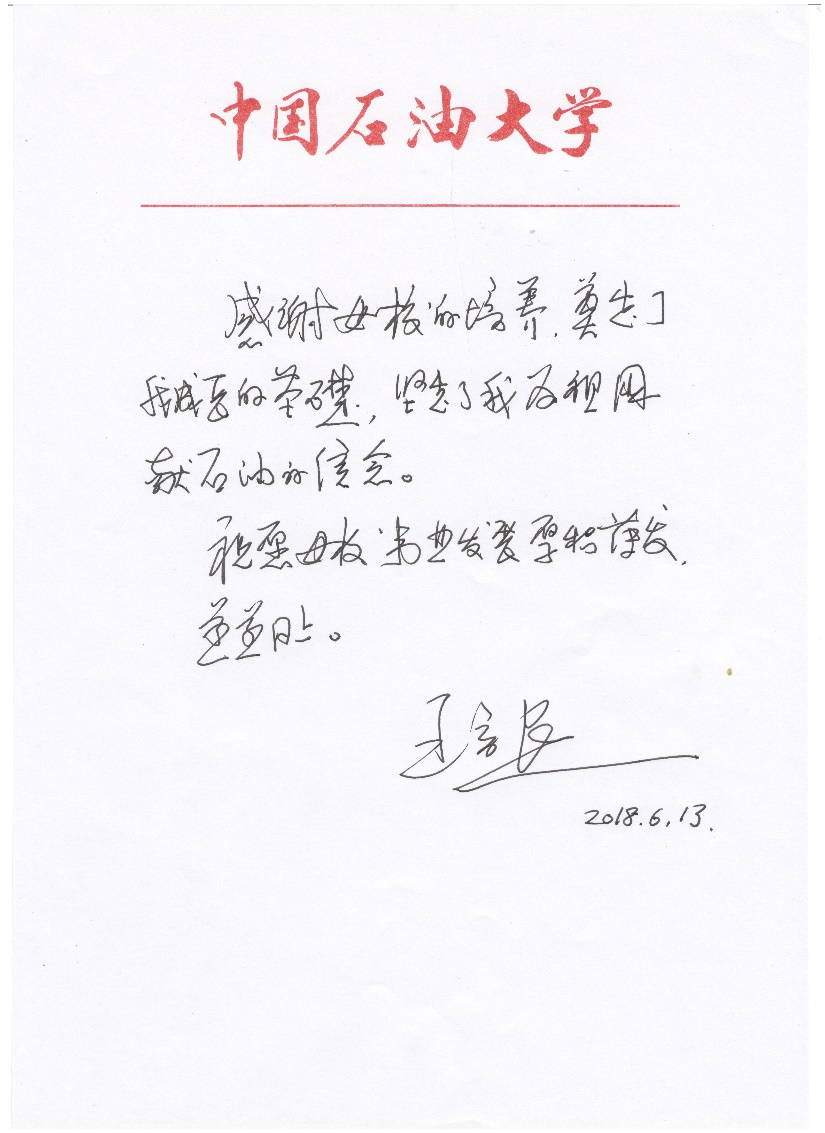 中国石油大学
感谢母校的培养,奠定了
我成长的基础,坚定了我为祖国
献石油的信念。
祝愿母校事业发展厚积薄发,
蒸蒸日上。
2018.6.13.